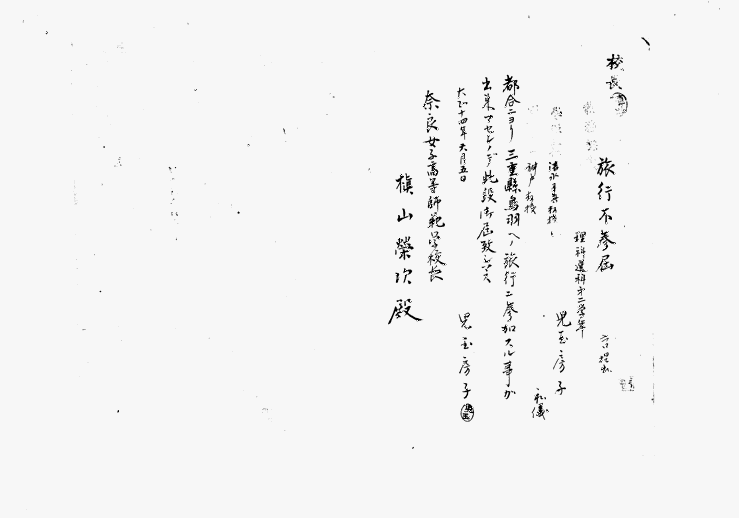 校長
旅行不参届
理科選科第二学年
児玉房子
私儀
都合ニヨリ三重縣鳥羽ヘノ旅行ニ参加スル事ガ
出来マセンノデ此段御届致シマス
大正十四年六月五日
児玉房子
奈良女子高等師範学校長
槇山榮次殿